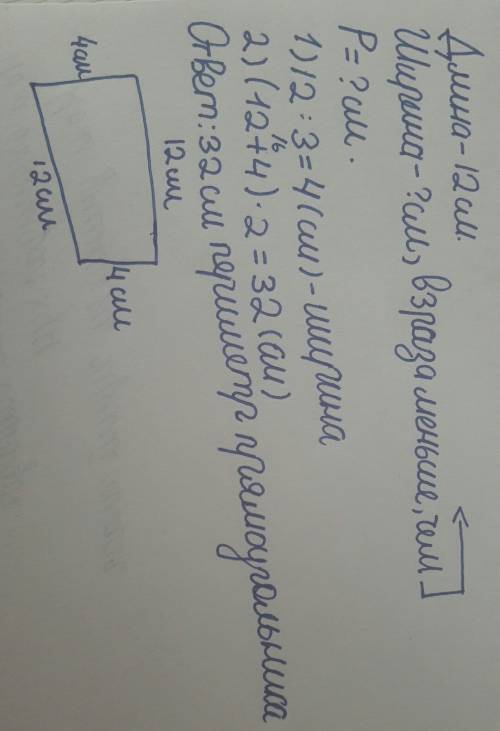 Длина - 12 см.
Ширина - ? см, в 3 раза меньше, чем
P = ? см.
1) 12 : 3 = 4 (см) - ширина
16
2) (12 + 4) · 2 = 32 (см)
Ответ: 32 см периметр прямоугольника
12 см
4 см
4 см
12 см